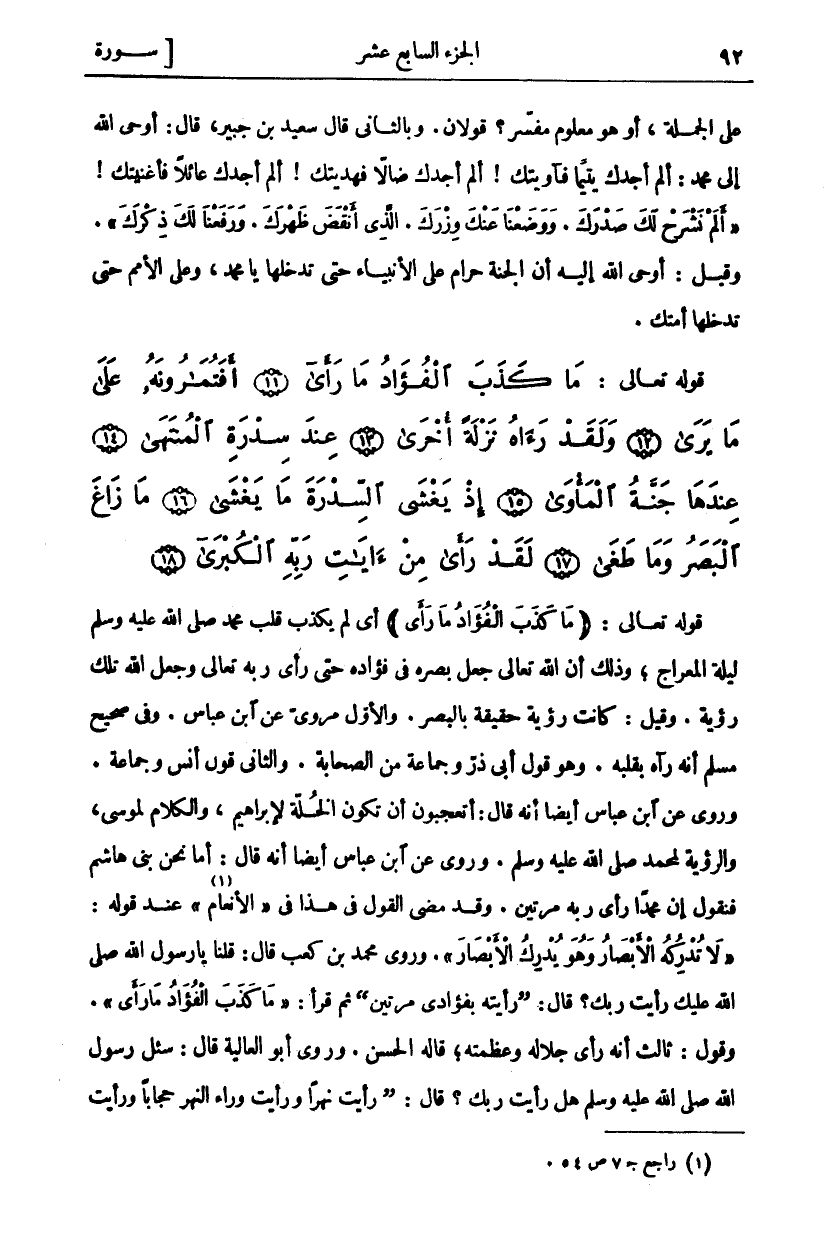 ٩٢ الجزء السابع عشر [ ســـورة
على الجملة ، أو هو معلوم مفسّر؟ قولان. وبالثانى قال سعيد بن جبير، قال: أوحى الله
إلى محمد : ألم أجدك يتيًما فآويتك ! ألم أجدك ضالًا فهديتك ! ألم أجدك عائلاً فأغنيتك !
« أَلَمْ نَشْرَحْ لَكَ صَدْرَكَ . وَوَضَعْنَا عَنْكَ وِزْرَكَ . الَّذِى أَنْقَضَ ظَهْرَكَ . وَرَفَعْنَا لَكَ ذِكْرَكَ » .
وقيل : أوحى الله إليه أن الجنة حرام على الأنبياء حتى تدخلها يا محمد ، وعلى الأمم حتى
تدخلها أمتك .
قوله تعالى : مَا كَذَبَ ٱلْفُؤَادُ مَا رَأَىٰٓ ﴿١١﴾ أَفَتُمَٰرُونَهُۥ عَلَىٰ
مَا يَرَىٰ ﴿١٢﴾ وَلَقَدْ رَءَاهُ نَزْلَةً أُخْرَىٰ ﴿١٣﴾ عِندَ سِدْرَةِ ٱلْمُنتَهَىٰ ﴿١٤﴾
عِندَهَا جَنَّةُ ٱلْمَأْوَىٰٓ ﴿١٥﴾ إِذْ يَغْشَى ٱلسِّدْرَةَ مَا يَغْشَىٰ ﴿١٦﴾ مَا زَاغَ
ٱلْبَصَرُ وَمَا طَغَىٰ ﴿١٧﴾ لَقَدْ رَأَىٰ مِنْ ءَايَٰتِ رَبِّهِ ٱلْكُبْرَىٰٓ ﴿١٨﴾
قوله تعالى : ﴿ مَا كَذَبَ الْفُؤَادُ مَا رَأَى ﴾ أى لم يكذب قلب محمد صلى الله عليه وسلم
ليلة المعراج ؛ وذلك أن الله تعالى جعل بصره فى فؤاده حتى رأى ربه تعالى وجعل الله تلك
رؤية . وقيل : كانت رؤية حقيقة بالبصر . والأوّل مروىّ عن آبن عباس . وفى صحيح
مسلم أنه رآه بقلبه . وهو قول أبى ذرّ وجماعة من الصحابة . والثانى قول أنس وجماعة .
وروى عن آبن عباس أيضا أنه قال: أتعجبون أن تكون الخُلّة لإبراهيم ، والكلام لموسى،
والرؤية لمحمد صلى الله عليه وسلم . وروى عن آبن عباس أيضا أنه قال : أما نحن بنى هاشم
فنقول إن محمدًا رأى ربه مرتين . وقد مضى القول فى هذا فى « الأنعام »(١) عند قوله :
« لَا تُدْرِكُهُ الْأَبْصَارُ وَهُوَ يُدْرِكُ الْأَبْصَارَ » . وروى محمد بن كعب قال : قلنا يا رسول الله صلى
الله عليك رأيت ربك؟ قال: ”رأيته بفؤادى مرتين“ ثم قرأ : « مَا كَذَبَ الْفُؤَادُ مَا رَأَى » .
وقول : ثالث أنه رأى جلاله وعظمته؛ قاله الحسن . وروى أبو العالية قال : سئل رسول
الله صلى الله عليه وسلم هل رأيت ربك ؟ قال : ” رأيت نهرًا ورأيت وراء النهر حجاباً ورأيت
(١) راجع جـ ٧ ص ٥٤ .